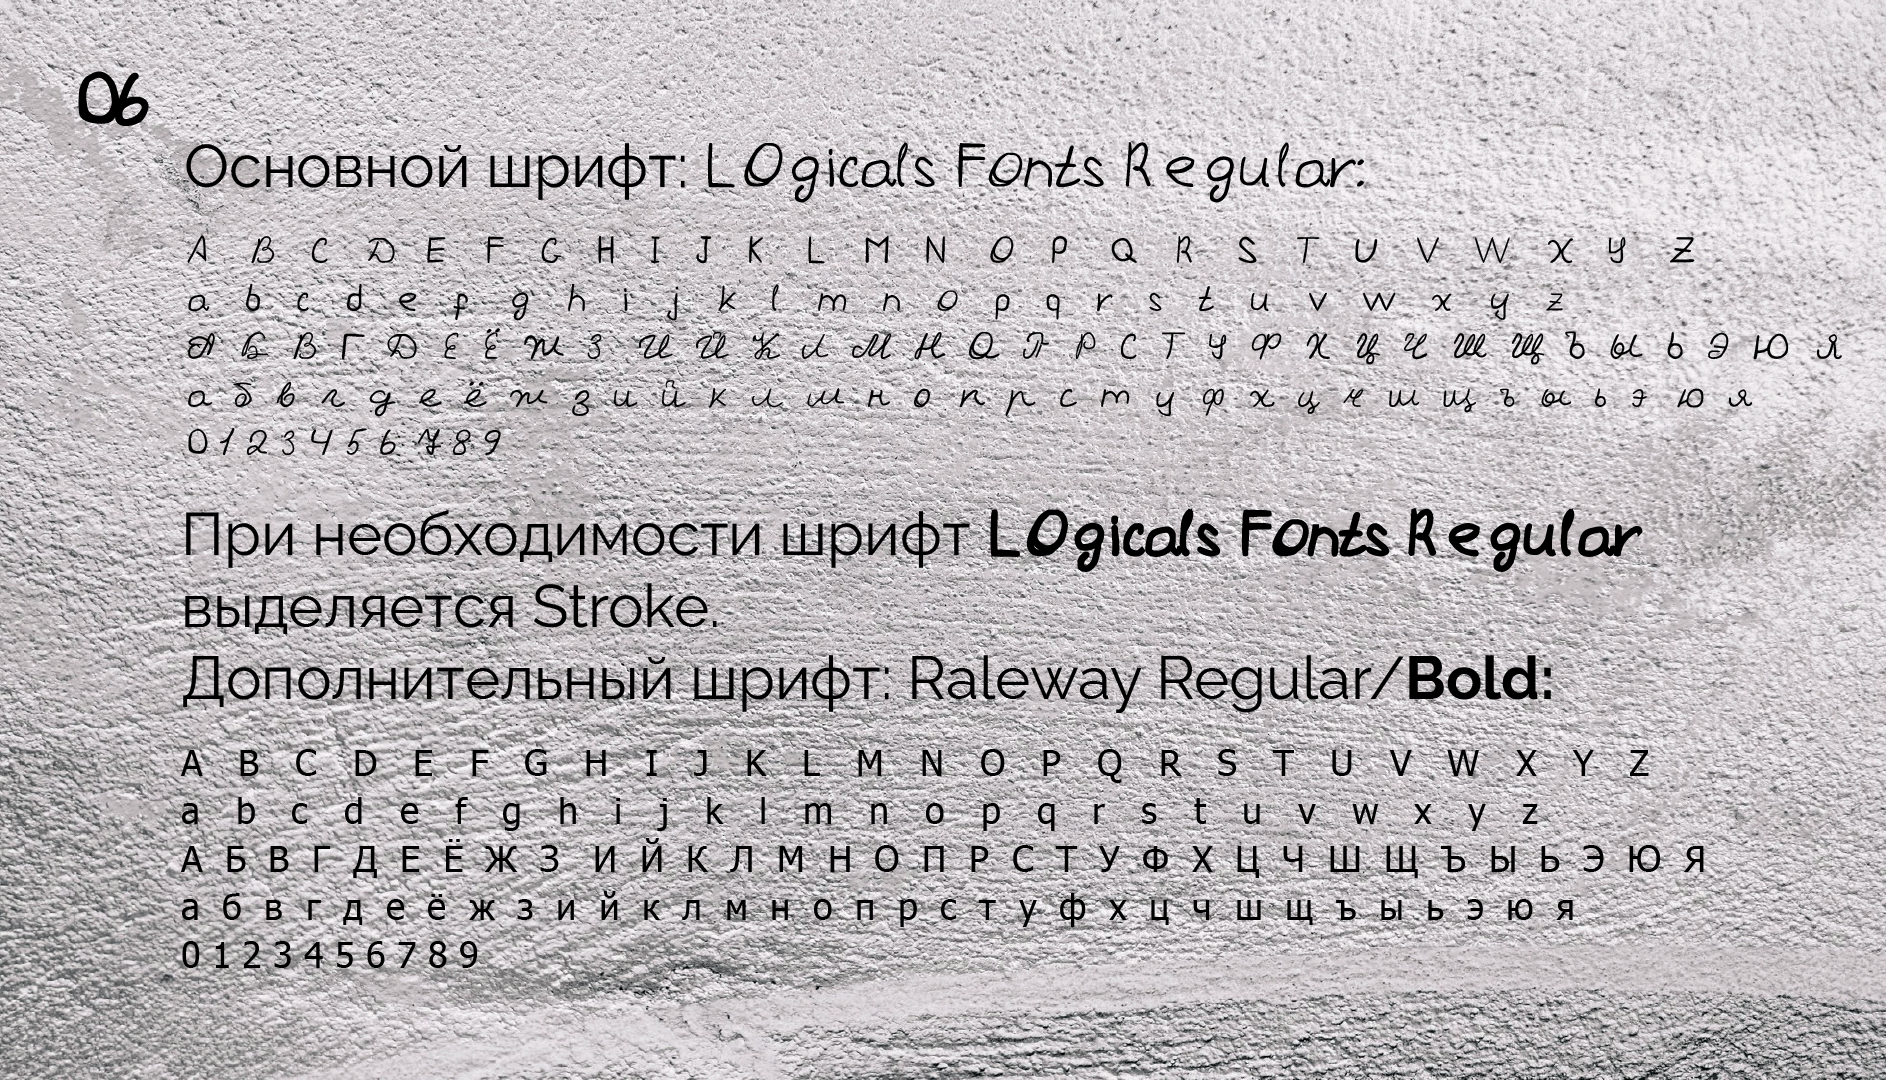 06
Основной шрифт: LOgicals Fonts Regular:
A B C D E F G H I J K L M N O P Q R S T U V W X Y Z
a b c d e f g h i j k l m n o p q r s t u v w x y z
А Б В Г Д Е Ё Ж З И Й К Л М Н О П Р С Т У Ф Х Ц Ч Ш Щ Ъ Ы Ь Э Ю Я
а б в г д е ё ж з и й к л м н о п р с т у ф х ц ч ш щ ъ ы ь э ю я
0 1 2 3 4 5 6 7 8 9
При необходимости шрифт LOgicals Fonts Regular
выделяется Stroke.
Дополнительный шрифт: Raleway Regular/Bold:
A B C D E F G H I J K L M N O P Q R S T U V W X Y Z
a b c d e f g h i j k l m n o p q r s t u v w x y z
А Б В Г Д Е Ё Ж З И Й К Л М Н О П Р С Т У Ф Х Ц Ч Ш Щ Ъ Ы Ь Э Ю Я
а б в г д е ё ж з и й к л м н о п р с т у ф х ц ч ш щ ъ ы ь э ю я
0 1 2 3 4 5 6 7 8 9